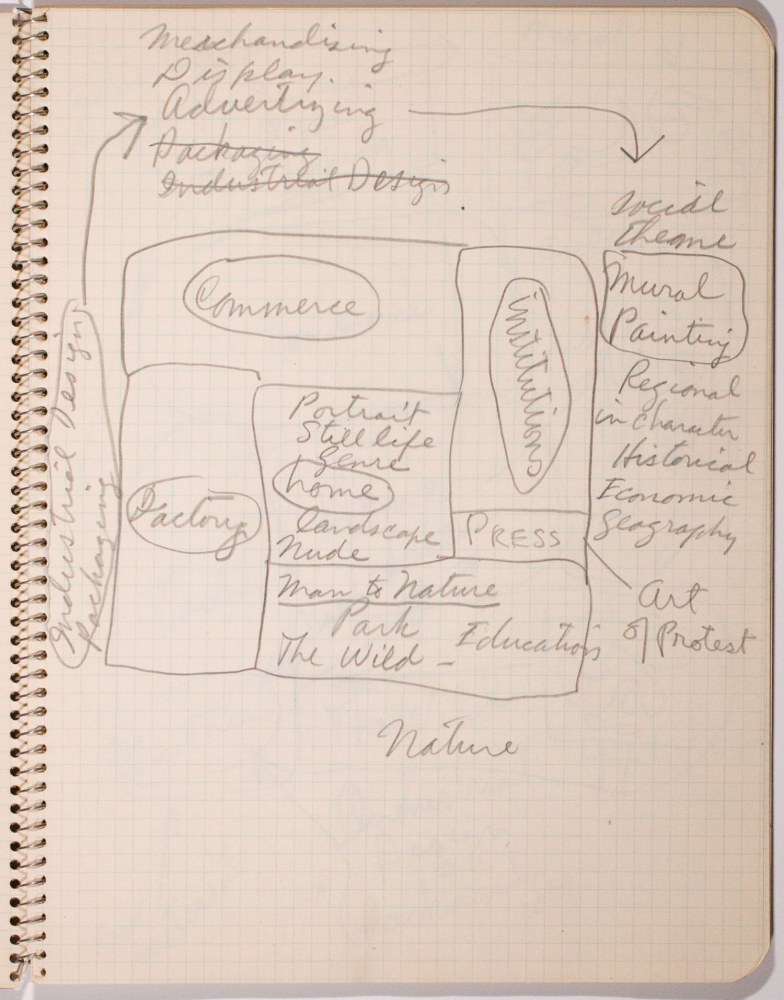 Merchandising
Display.
Advertizing
Packaging
Industrial Design
Social
theme
Mural
Painting
Regional
in character
Historical
Economic
Geography
Art
of Protest
Commerce
institutions
Portrait
Still life
genre
home
landscape
Nude
Factory
PRESS
Man to Nature
Park
The Wild - Education
Nature
Industrial Design
Packaging